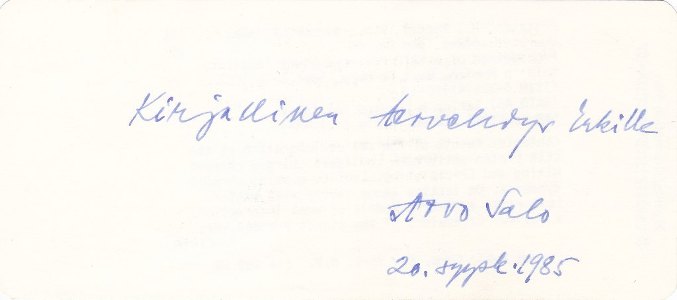 Kirjallinen tervehdys Erkille
Arvo Salo
20. syysk. 1985